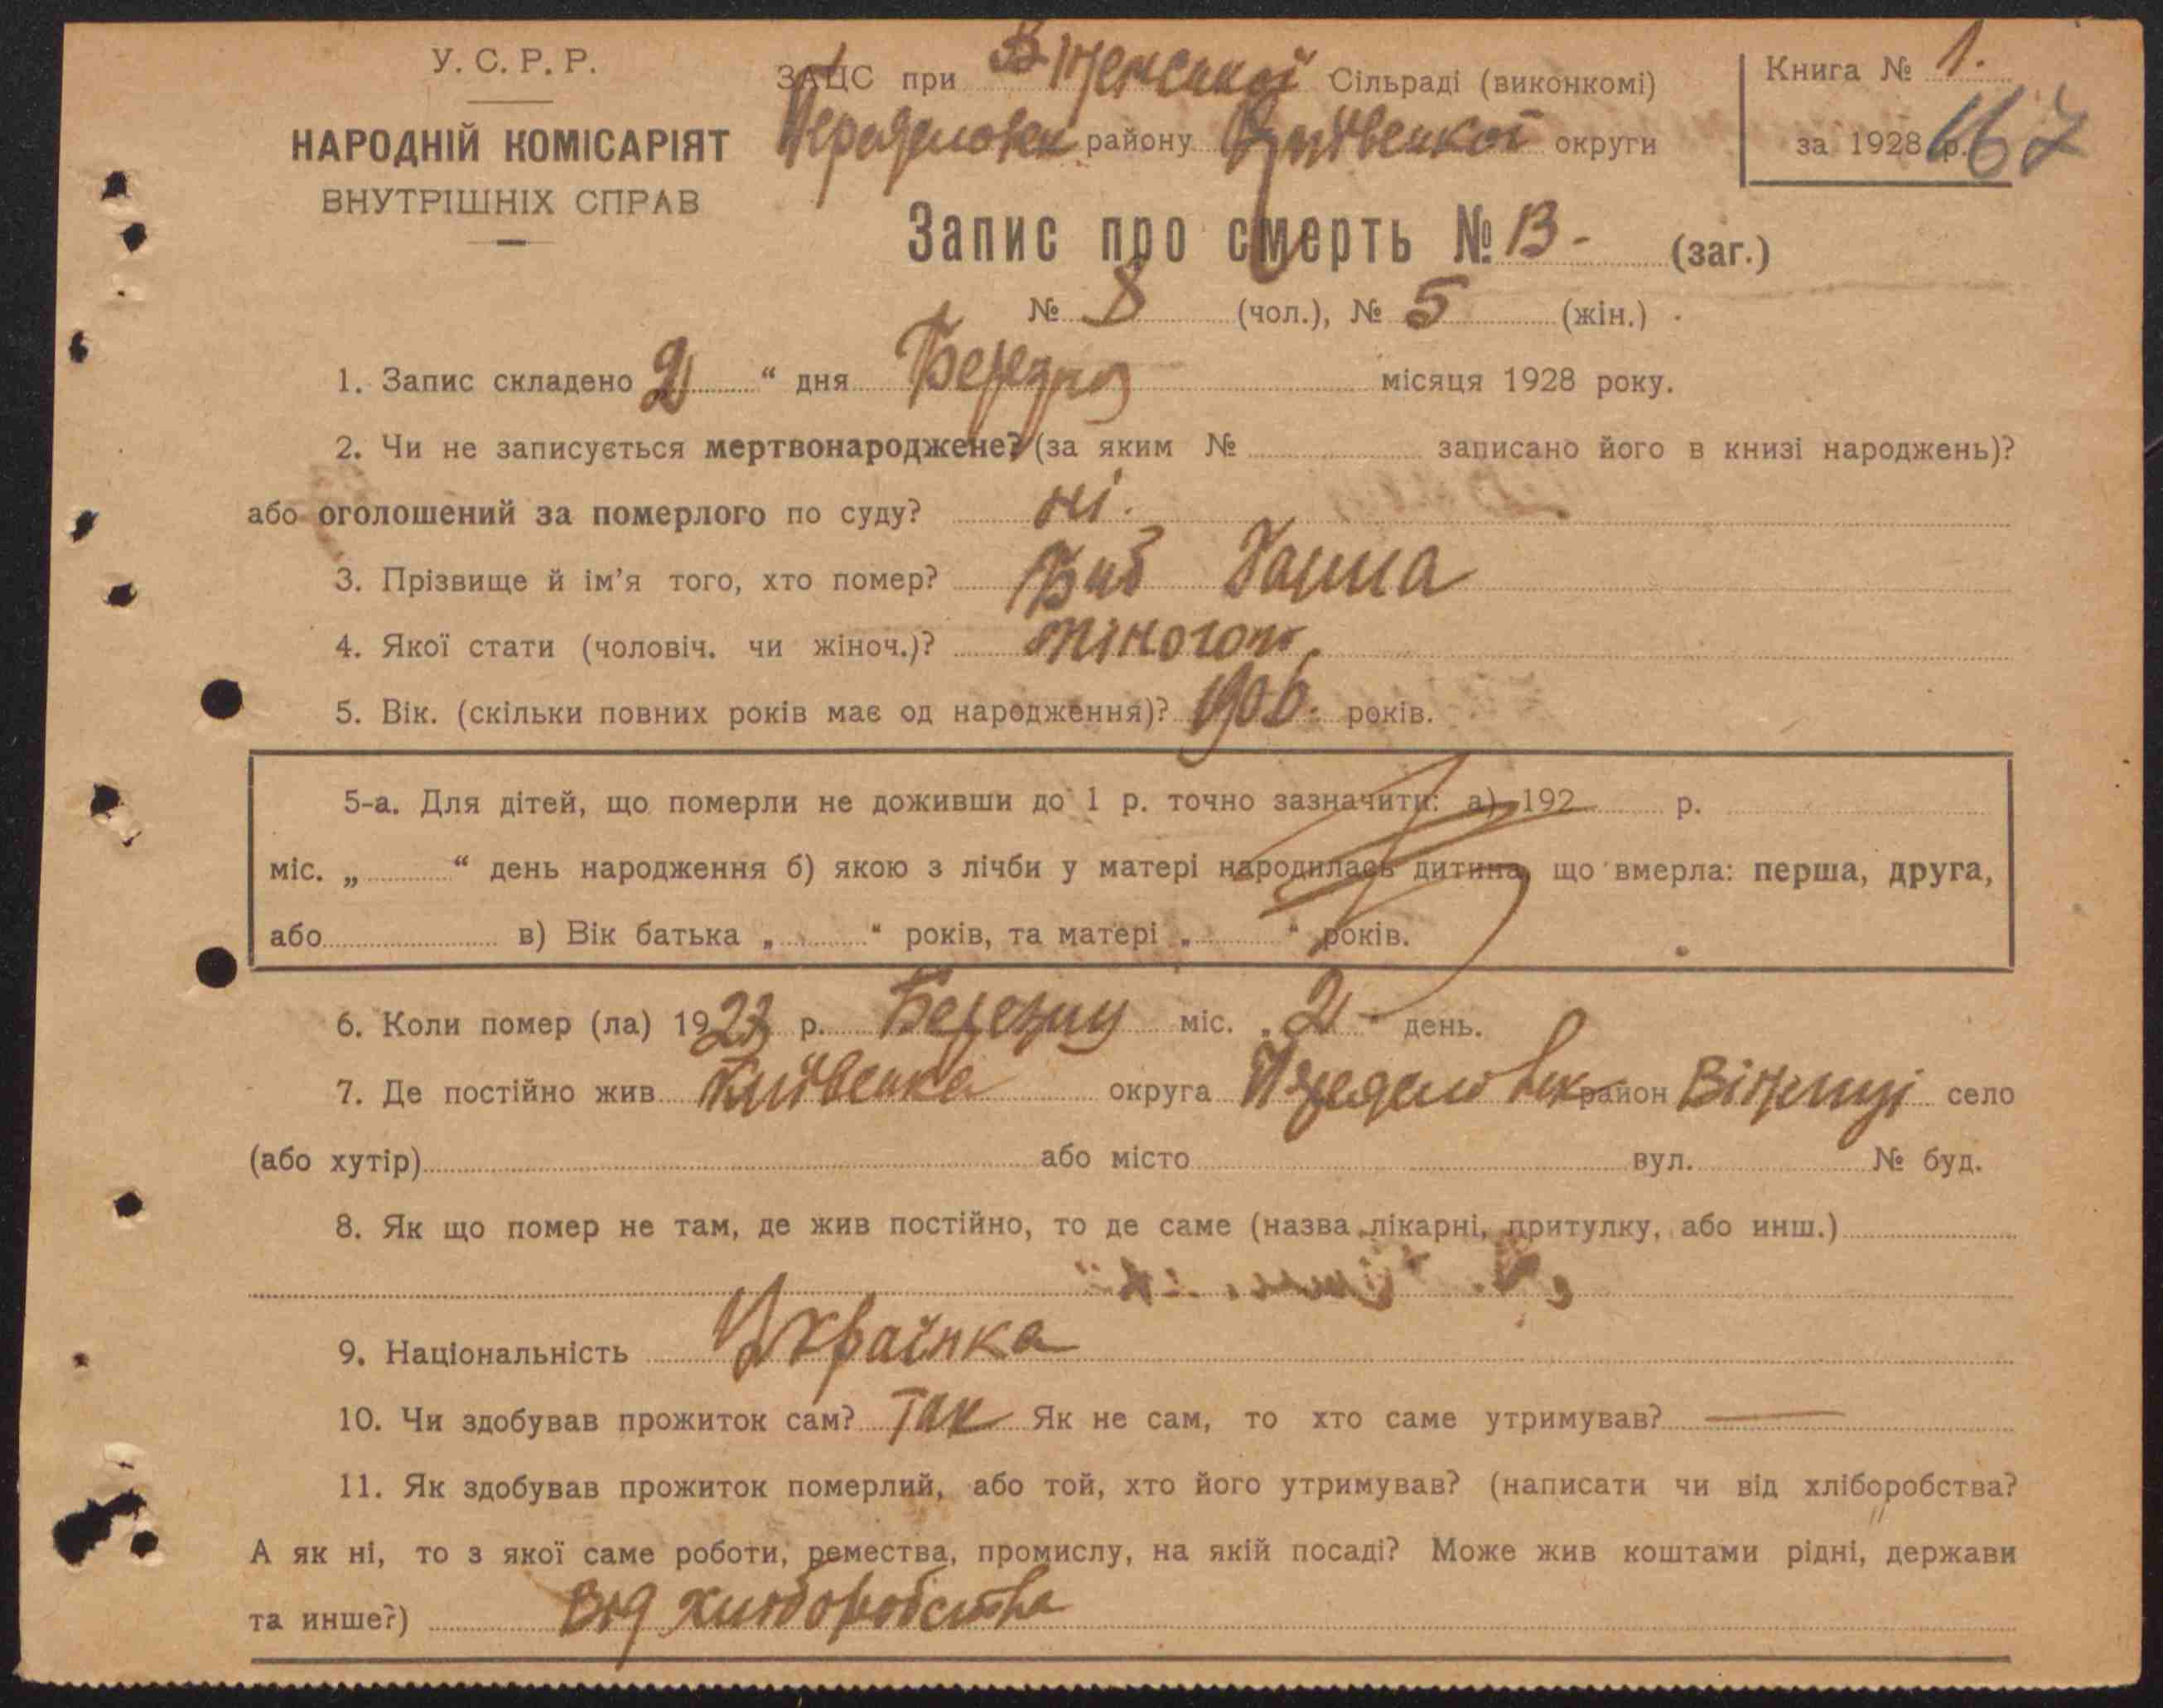 У. С. Р. Р.
НАРОДНІЙ КОМІСАРІЯТ
ВНУТРІШНІХ СПРАВ
ЗАЦС при Сільраді (виконкомі)
району Київської округи
Книга № 1.
за 1928 р. 167
Запис про смерть № 13 - (заг.)
№ 8 (чол.), № 5 (жін.)
1. Запис складено 2 “ дня Березня місяця 1928 року.
2. Чи не записується мертвонароджене? (за яким № записано його в книзі народжень)?
або оголошений за померлого по суду? ні.
3. Прізвище й ім’я того, хто помер? Ганна
4. Якої стати (чоловіч. чи жіноч.)? жіночої
5. Вік. (скільки повних років має од народження)? 1906. років.
5-а. Для дітей, що померли не доживши до 1 р. точно зазначити: а) 192 р.
міс. „ “ день народження б) якою з лічби у матері народилась дитина, що вмерла: перша, друга,
або в) Вік батька „ “ років, та матері „ “ років.
6. Коли помер (ла) 19 р. Березня міс. „ 2 “ день.
7. Де постійно жив Київська округа район село
(або хутір) або місто вул. № буд.
8. Як що помер не там, де жив постійно, то де саме (назва лікарні, притулку, або инш.)
9. Національність Українка
10. Чи здобував прожиток сам? Так Як не сам, то хто саме утримував? —
11. Як здобував прожиток померлий, або той, хто його утримував? (написати чи від хліборобства?
А як ні, то з якої саме роботи, ремества, промислу, на якій посаді? Може жив коштами рідні, держави
та инше?) Від хліборобства